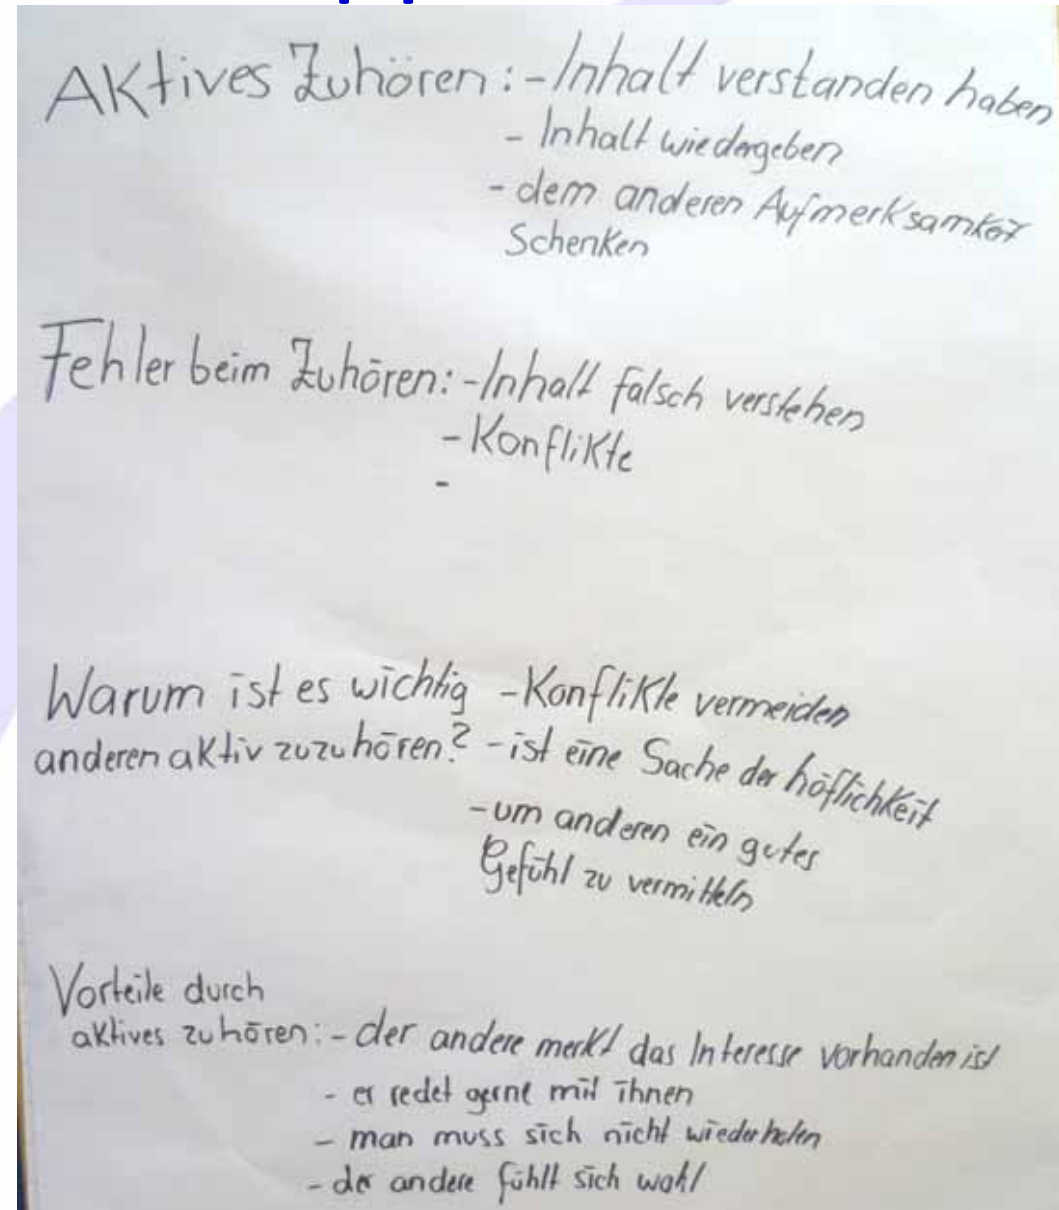 Aktives Zuhören: - Inhalt verstanden haben
- Inhalt wiedergeben
- dem anderen Aufmerksamkeit
Schenken
Fehler beim Zuhören: - Inhalt falsch verstehen
- Konflikte
-
Warum ist es wichtig - Konflikte vermeiden
anderen aktiv zuzuhören? - ist eine Sache der höflichkeit
- um anderen ein gutes
Gefühl zu vermitteln
Vorteile durch
aktives zuhören: - der andere merkt das Interesse vorhanden ist
- er redet gerne mit ihnen
- man muss sich nicht wiederholen
- der andere fühlt sich wohl